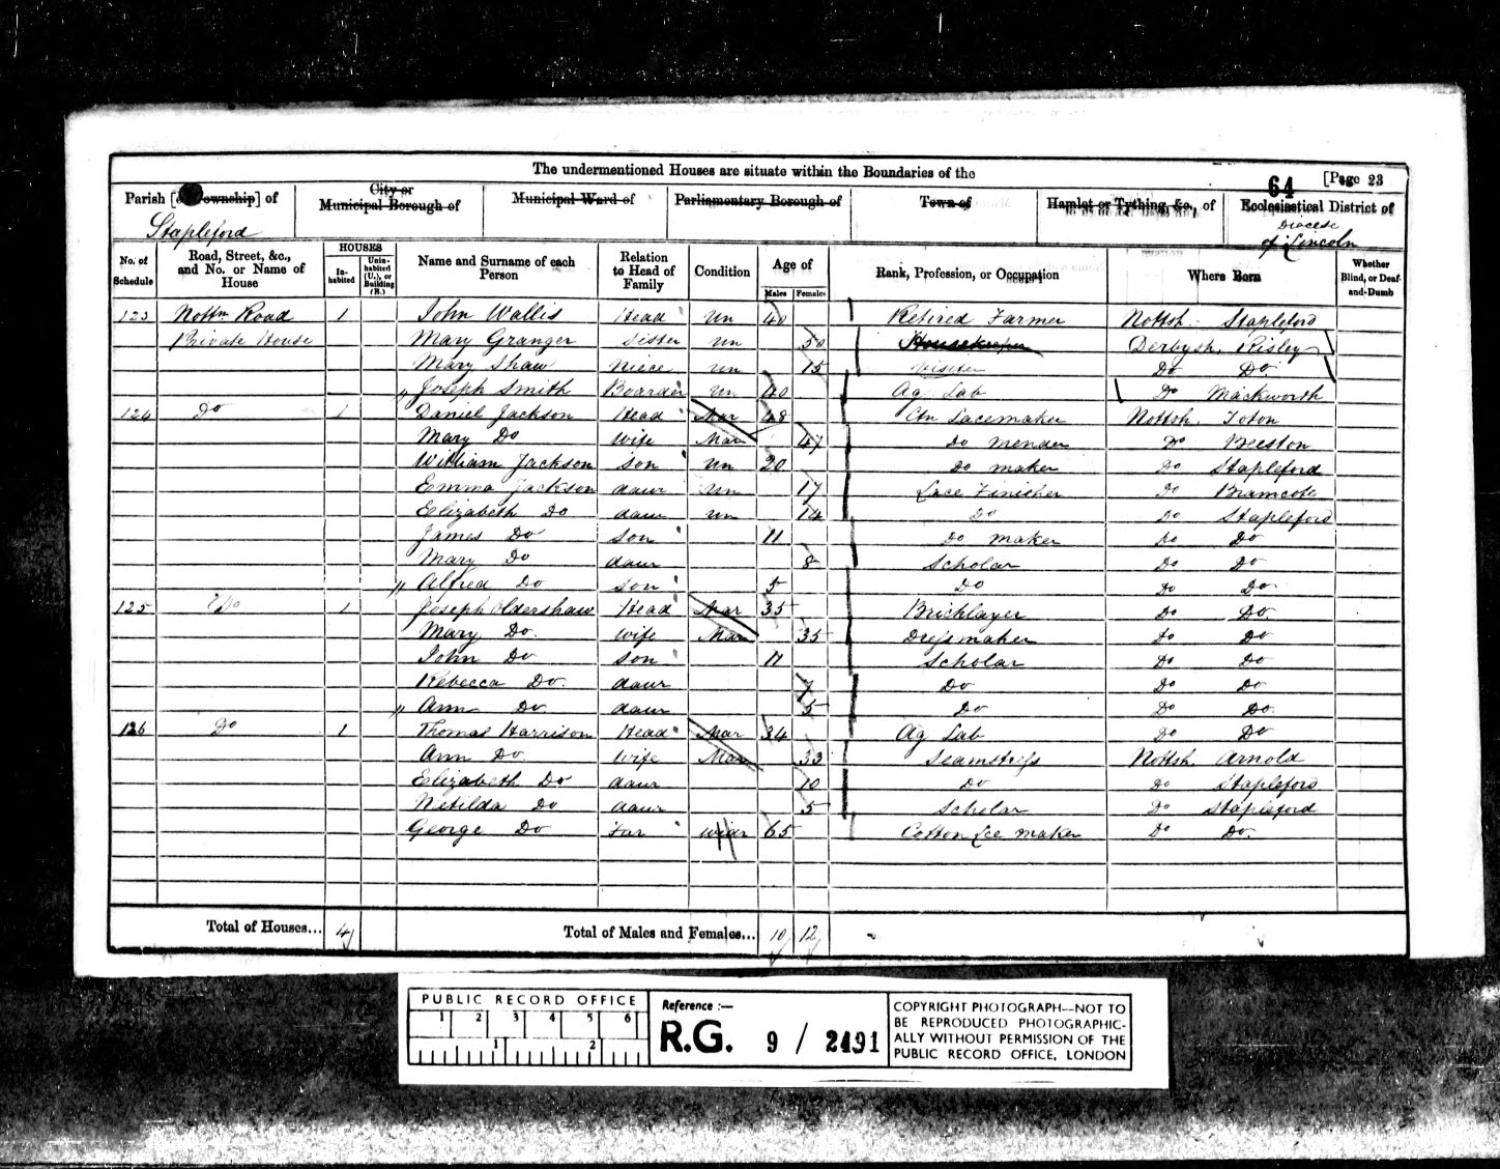 The undermentioned Houses are situate within the Boundaries of the
64 [Page 23
Parish [or Township] of City or Municipal Borough of Municipal Ward of Parliamentary Borough of Town of Hamlet or Tything, &c., of Ecclesiastical District of
Stapleford Diocese of Lincoln
No. of Schedule Road, Street, &c., and No. or Name of House HOUSES Inhabited Uninhabited (U.), or Building (B.) Name and Surname of each Person Relation to Head of Family Condition Age of Males Females Rank, Profession, or Occupation Where Born Whether Blind, or Deaf-and-Dumb
123 Nottm Road 1 John Wallis Head Un 40 Retired Farmer Nottsh. Stapleford
Private House Mary Granger Sister Un 50 Housekeeper Derbysh. Risley
Mary Shaw Niece Un 15 Visitor Do Do
" Joseph Smith Boarder Un 40 Ag Lab Do Mackworth
124 Do 1 Daniel Jackson Head Mar 48 Ctn Lacemaker Nottsh. Toton
Mary Do Wife Mar 47 Do Mender Do Beeston
William Jackson son Un 20 Do maker Do Stapleford
Emma Jackson daur Un 17 Lace Finisher Do Bramcote
Elizabeth Do daur Un 14 Do Do Stapleford
James Do son 11 Do maker Do Do
Mary Do daur 8 Scholar Do Do
" Alfred Do son 5 Do Do Do
125 Do 1 Joseph Oldershaw Head Mar 35 Bricklayer Do Do
Mary Do Wife Mar 35 Dressmaker Do Do
John Do son 11 Scholar Do Do
Rebecca Do daur 7 Do Do Do
" Ann Do daur 5 Do Do Do
126 Do 1 Thomas Harrison Head Mar 34 Ag Lab Do Do
Ann Do Wife Mar 33 Seamstress Nottsh. Arnold
Elizabeth Do daur 10 Do Do Stapleford
Metilda Do daur 5 Scholar Do Stapleford
George Do Far Widr 65 Cotton Lce Maker Do Do
Total of Houses... 4 Total of Males and Females... 10 12
PUBLIC RECORD OFFICE
1 2 3 4 5 6
1 2
Reference :—
R.G. 9 / 2491
COPYRIGHT PHOTOGRAPH—NOT TO
BE REPRODUCED PHOTOGRAPHIC-
ALLY WITHOUT PERMISSION OF THE
PUBLIC RECORD OFFICE, LONDON